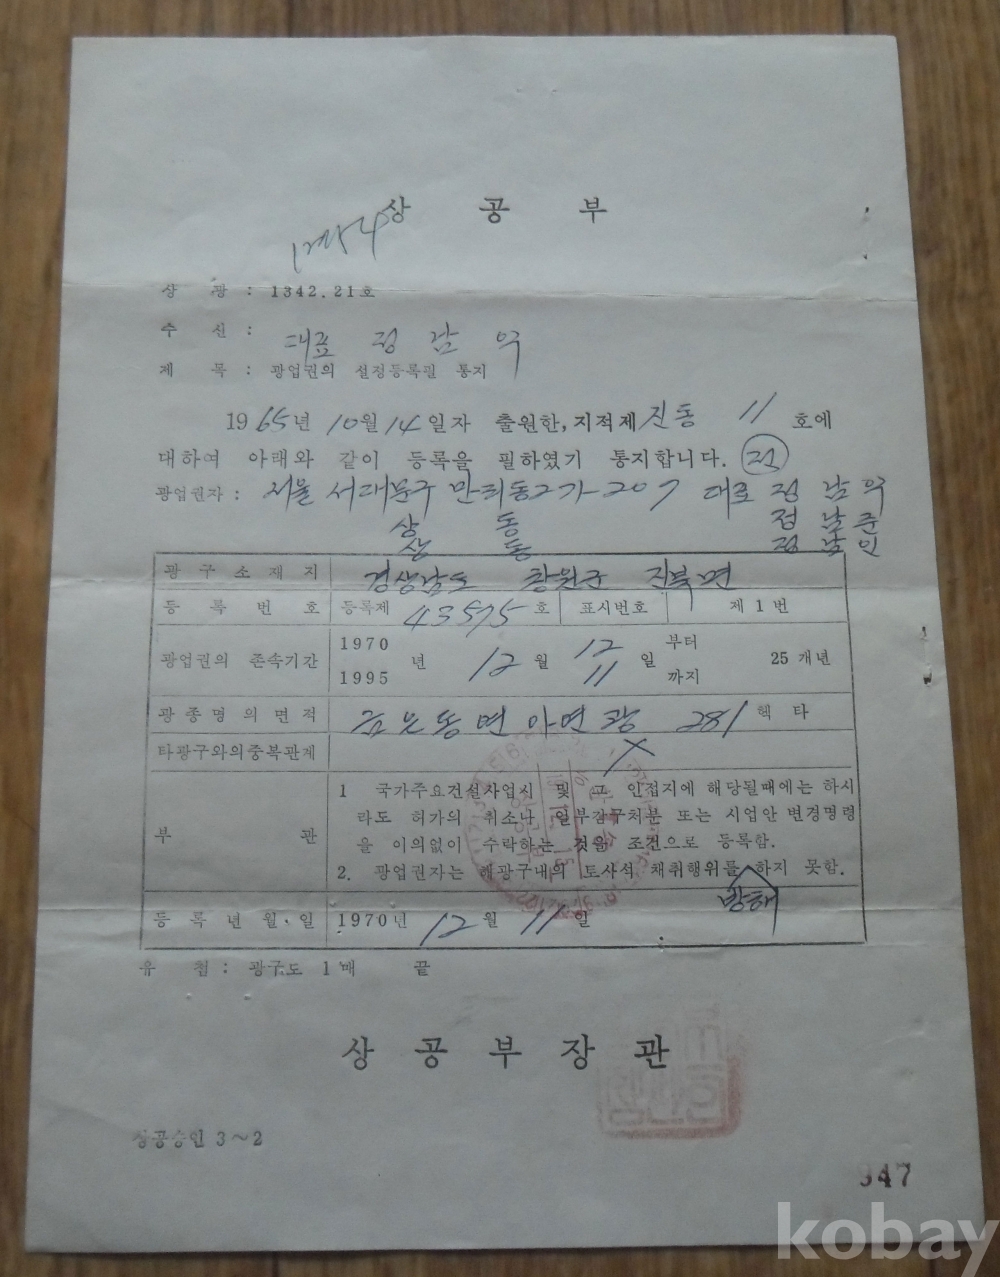 상 공 부
상 광 : 1342.21호
수 신 : 대표 정 남 억
제 목 : 광업권의 설정등록필 통지
1965년 10월 14일자 출원한, 지적제 진동 11 호에
대하여 아래와 같이 등록을 필하였기 통지합니다. 정
광업권자 : 서울 서대문구 만리동2가 207 대표 정 남 억
상 동 정 남 준
상 동 정 남 인
광 구 소 재 지 경상남도 창원군 진북면
등 록 번 호 등록제 43575 호 표시번호 제 1 번
광업권의 존속기간 1970 1995 년 12 월 12 11 일 부터 까지 25 개년
광 종 명 의 면 적 금 은 동 연 아연 광 281 헥 타
타광구와의중복관계 X
부 관
1 국가주요건설사업시 및 그 인접지에 해당될때에는 하시
라도 허가의 취소나 일부감구처분 또는 시업안 변경명령
을 이의없이 수락하는 것을 조건으로 등록함.
2. 광업권자는 해광구내의 토사석 채취행위를 하지 못함.
방해
등 록 년 월 · 일 1970년 12 월 11 일
유 첨 : 광구도 1 매 끝
상 공 부 장 관
상공승인 3~2
947
kobay